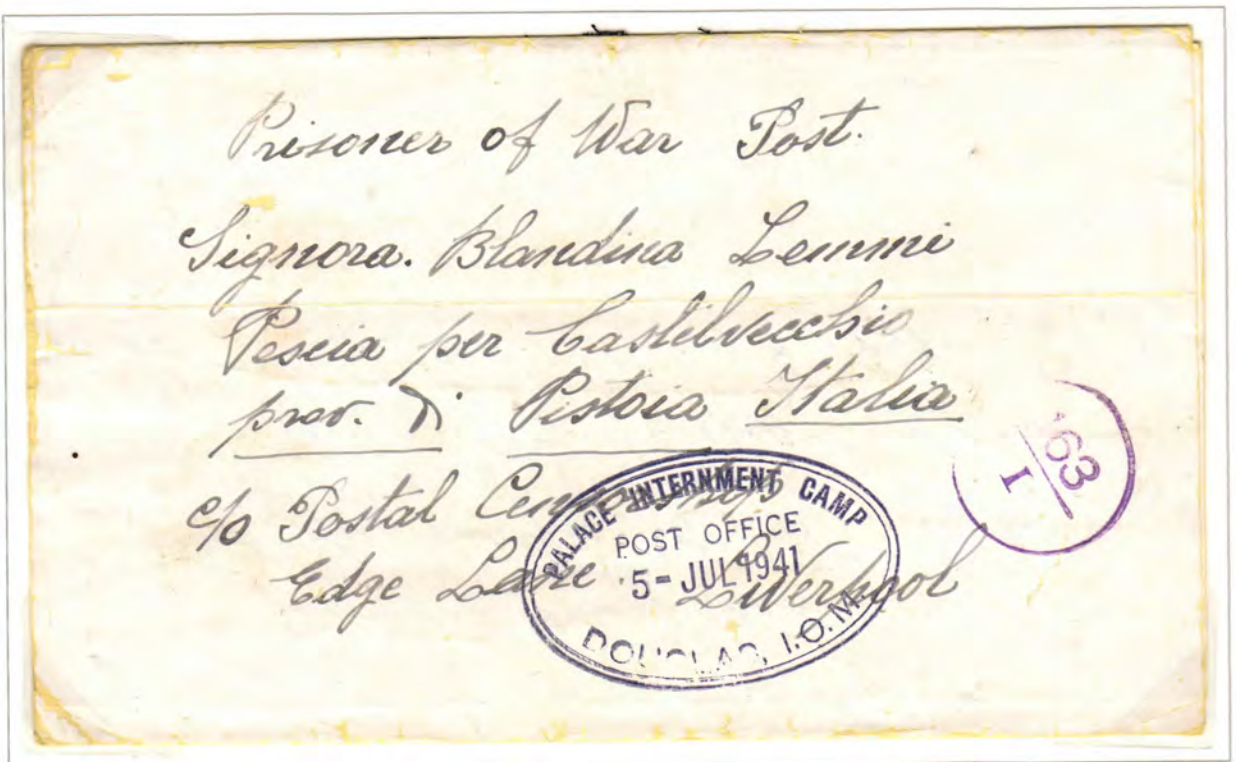 Prisoner of War Post.
Signora. Blandina Lemmi
Pescia per Castilvecchio
prov. Di Pistoia Italia
c/o Postal Censorship
Edge Lane. Liverpool
PALACE INTERNMENT CAMP
POST OFFICE
5- JUL 1941
DOUGLAS, I.O.M.
63
I